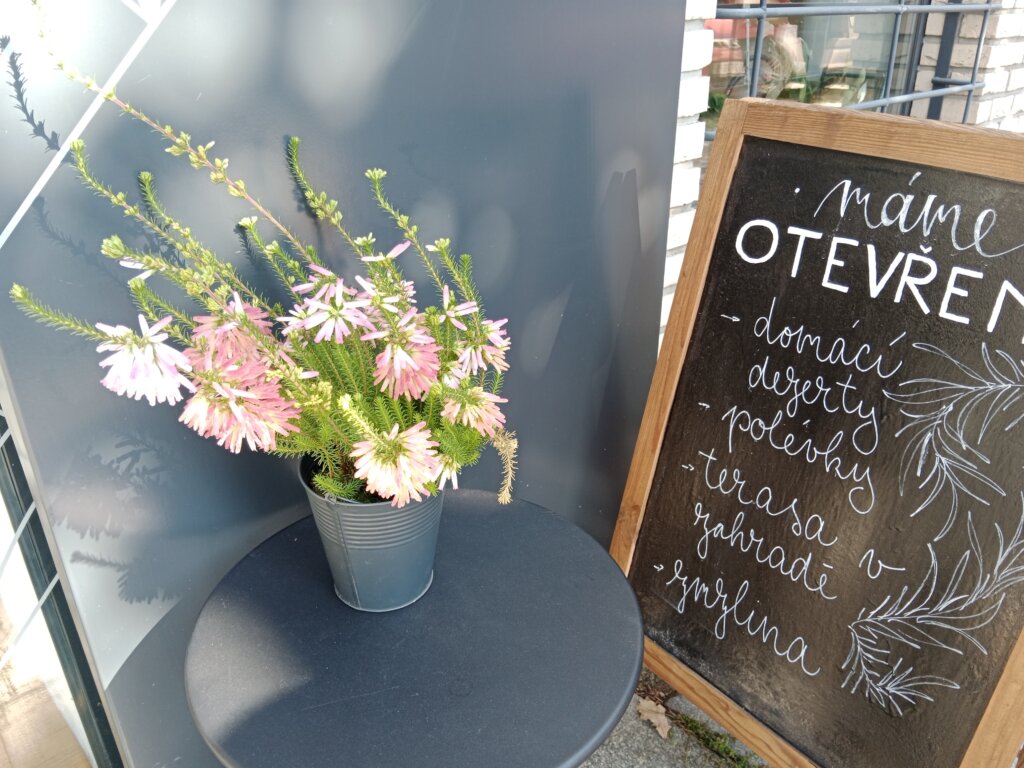 máme
OTEVŘEN
→ domácí
dezerty
→ polévky
→ terasa v
zahradě
→ zmrzlina